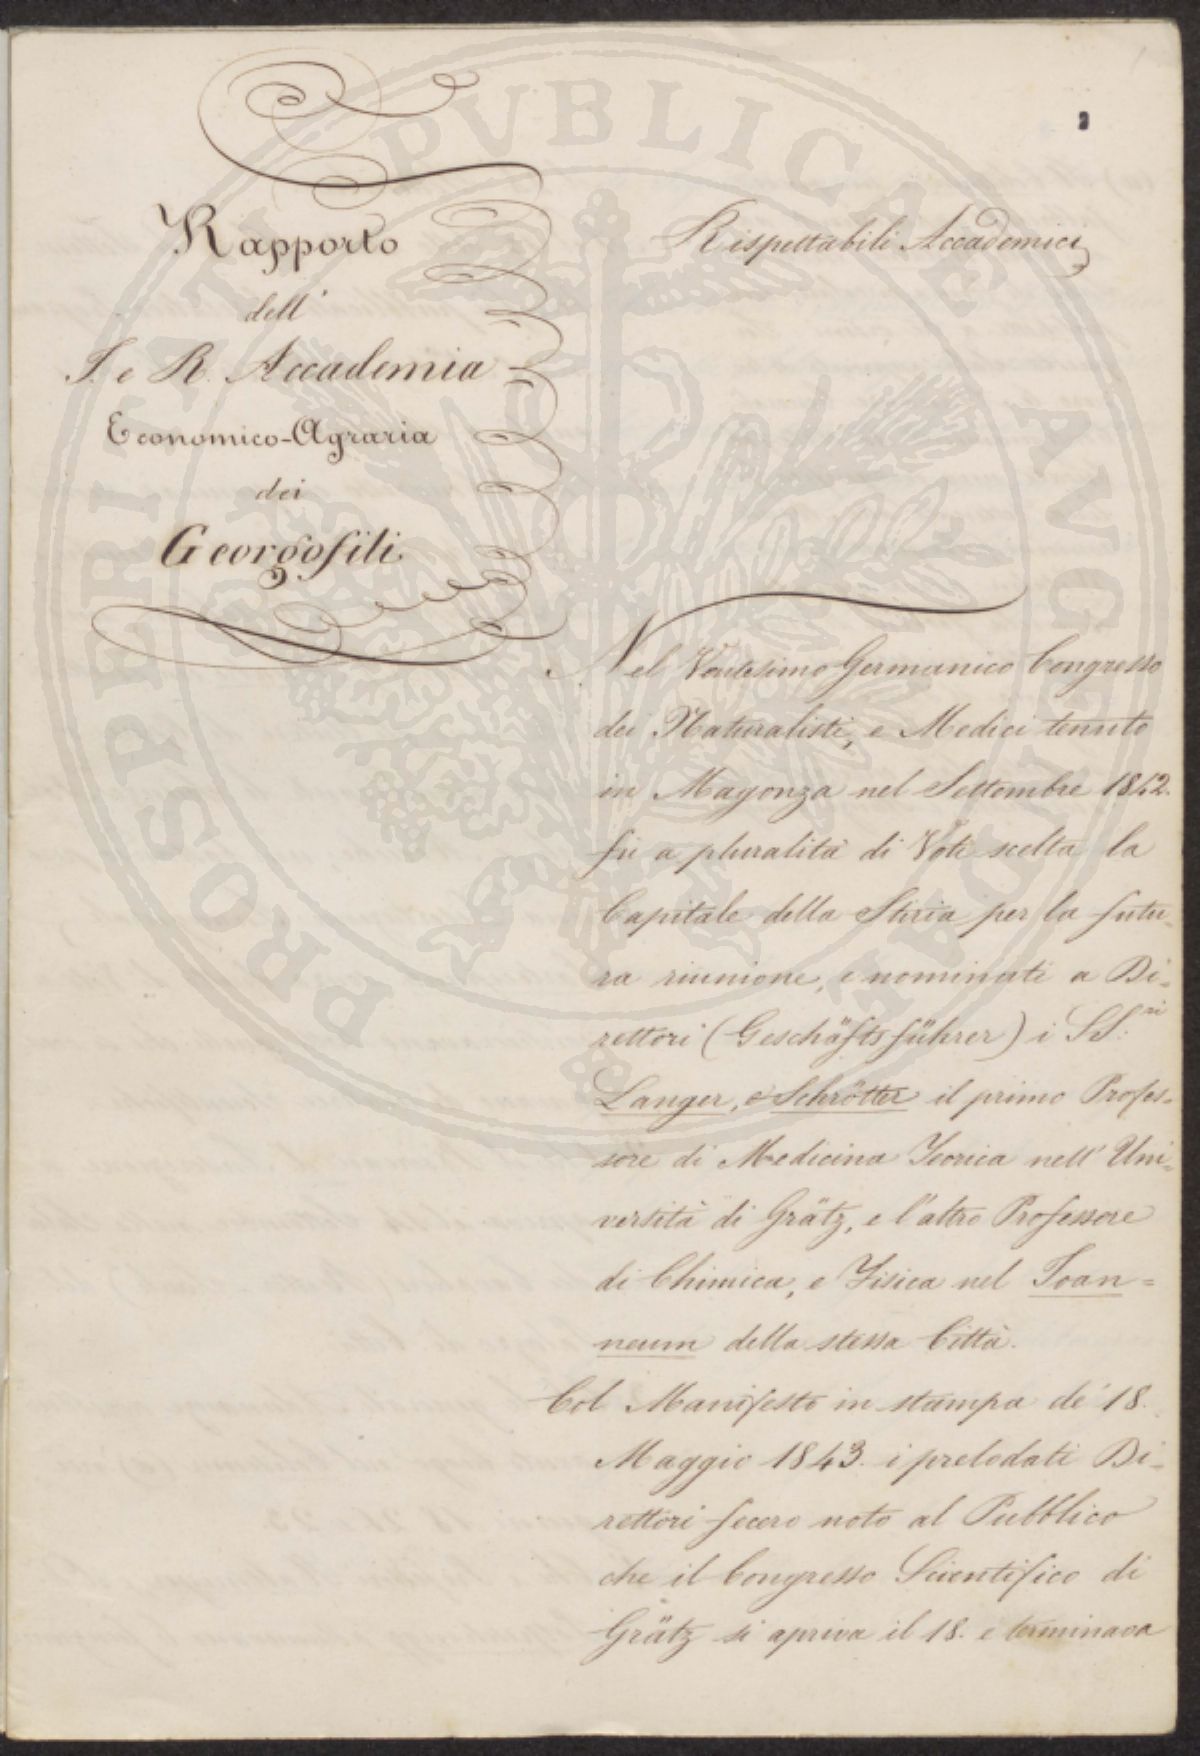 Rapporto
dell'
I. e R. Accademia
Economico-Agraria
dei
Georgofili
Rispettabili Accademici
Nel Ventesimo Germanico Congresso
dei Naturalisti, e Medici tenuto
in Magonza nel Settembre 1842.
fù a pluralità di Voti scelta la
Capitale della Stiria per la futu-
ra riunione, e nominati a Di-
rettori (Geschäftsführer) i SS.ri
Langer, e Schrötter il primo Profes-
sore di Medicina Teorica nell' Uni-
versità di Grätz, e l'altro Professore
di Chimica, e Fisica nel Joan=
neum della stessa Città.
Col Manifesto in stampa de' 18.
Maggio 1843. i prelodati Di-
rettori fecero noto al Pubblico
che il Congresso Scientifico di
Grätz si apriva il 18. e terminava
PROSPERITATI PVBLICAE AVGENDAE